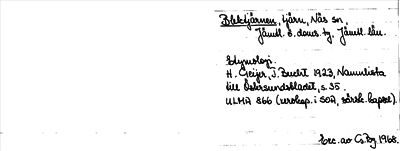 Blektjärnen, tjärn, Näs sn,
Jämtl. ö. doms. tg. Jämtl. län.
Etymologi.
H. Geijer, J. Bucht 1923, Namnlista
till Östersundsbladet, s. 35.
ULMA 866 (uroksp. i SOA, särsk. kapsel).
Exc. av G. Bg 1968.